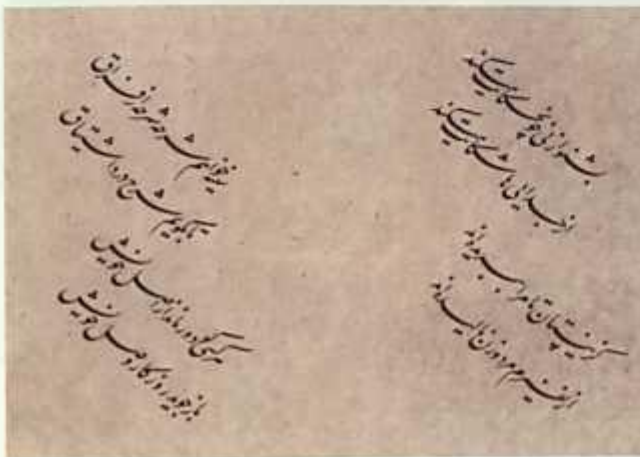 بشنو از نی چون حکایت میکند
از جداییها شکایت میکند
کز نیستان تا مرا ببریده‌اند
از نفیرم مرد و زن نالیده‌اند
سینه خواهم شرحه شرحه از فراق
تا بگویم شرح درد اشتیاق
هر کسی کو دور ماند از اصل خویش
باز جوید روزگار وصل خویش